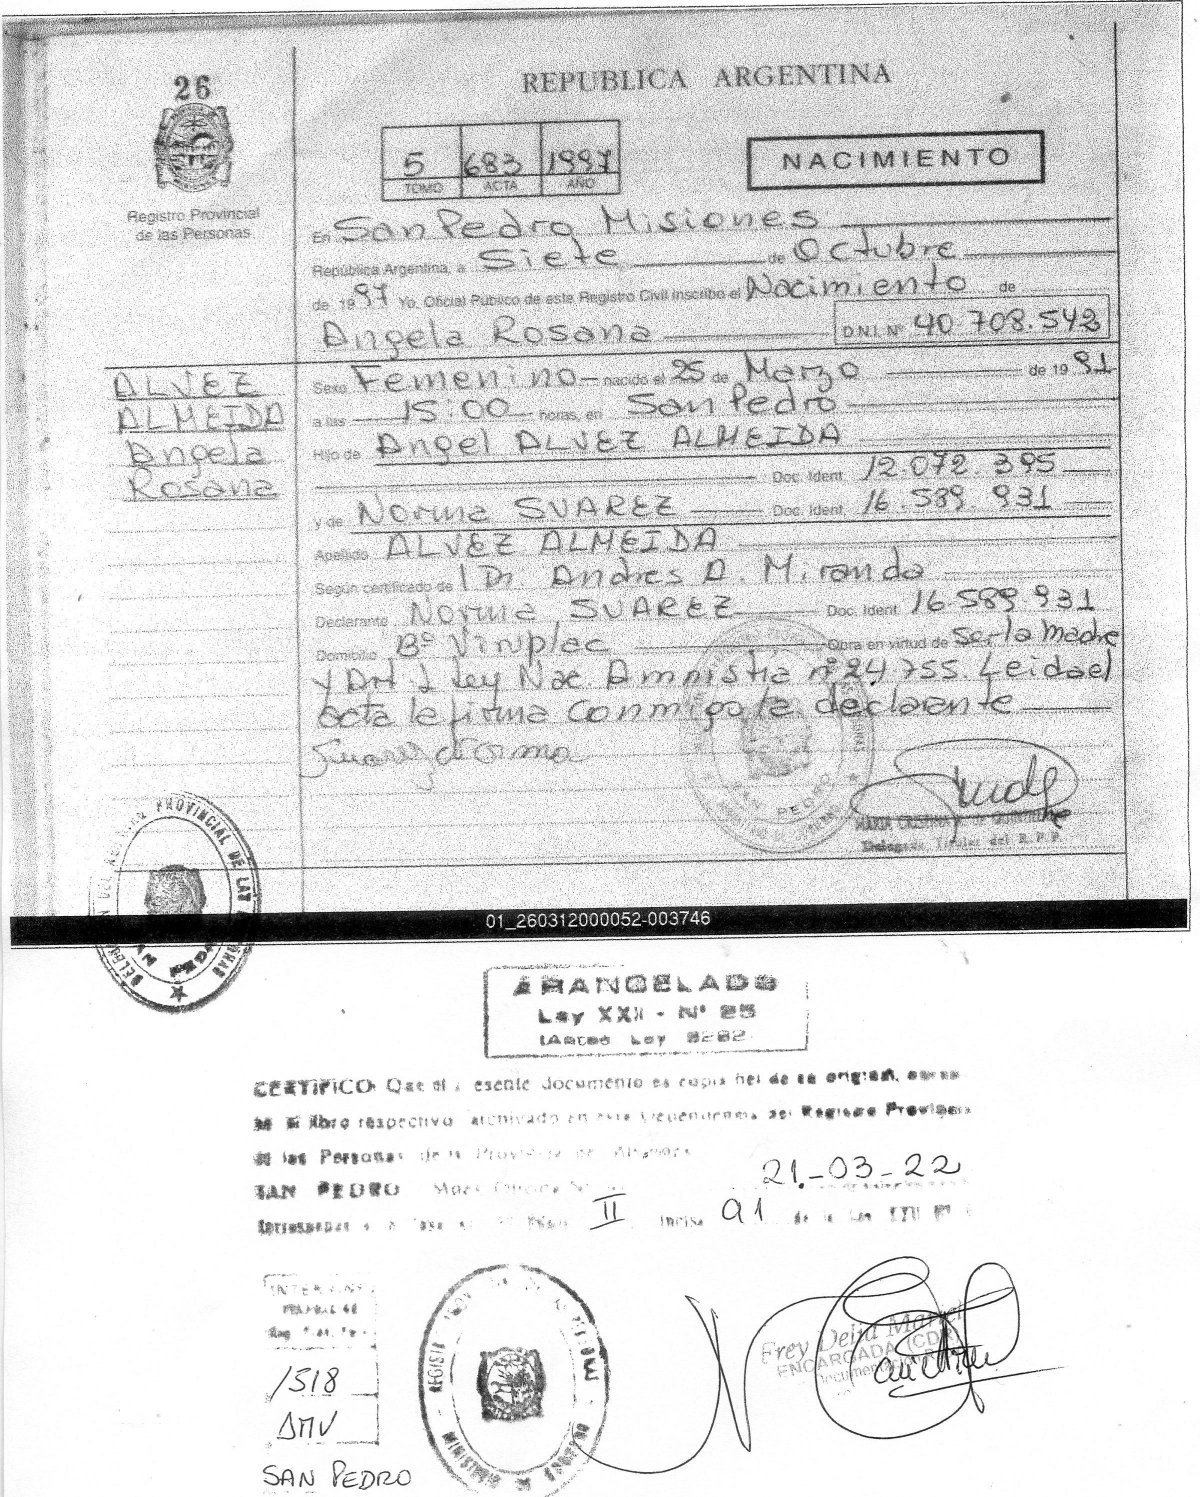 26
REPUBLICA ARGENTINA
5 683 1997
TOMO ACTA AÑO
NACIMIENTO
Registro Provincial
de las Personas
En San Pedro Misiones
República Argentina, a Siete de Octubre
de 1997 Yo, Oficial Público de este Registro Civil inscribo el Nacimiento de
Angela Rosana D.N.I. Nº 40.708.542
ALVEZ
ALMEIDA
Angela
Rosana
Sexo Femenino nacido el 25 de Marzo de 1991
a las 15:00 horas, en San Pedro
Hijo de Angel ALVEZ ALMEIDA
Doc. Ident. 12.072.395
y de Norma SUAREZ Doc. Ident. 16.589.931
Apellido ALVEZ ALMEIDA
Según certificado de l Dr. Andres A. Miranda
Declarante Norma SUAREZ Doc. Ident. 16.589.931
Domicilio Bº Vinplac Obra en virtud de ser la madre
y Art 1 Ley Nac. Amnistia nº 24.755. Leida el
acta la firma conmigo la declarante
Suarez Norma
SAN PEDRO
MARIA CRISTINA
Delegada Titular del R.P.P.
PROVINCIAL DE LAS
01_260312000052-003746
ARANCELADO
Ley XXII - Nº 25
(Antes Ley 3262)
CERTIFICO: Que el presente documento es copia fiel de su original,
el libro respectivo archivado en esta dependencia del Registro Provincial
de las Personas de la Provincia de Misiones
SAN PEDRO Misiones 21-03-22
II Inciso a1 de la Ley XXII Nº
1518
AMV
SAN PEDRO
Frey Delia Mariel
ENCARGADA (CDR)
Documentación